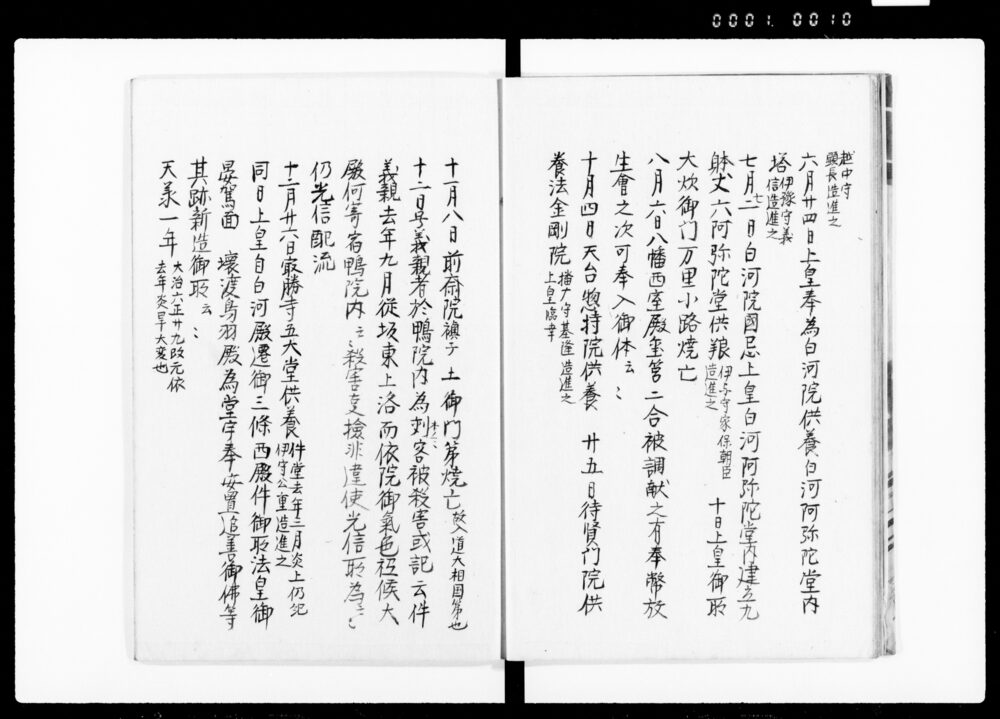 0001 0010
越中守
顕長造進之
六月廿四日上皇奉為白河院供養白河阿弥陀堂内
塔 伊豫守義
信造進之
七月二日白河院國忌上皇白河阿弥陀堂内建立九
七
躰丈六阿弥陀堂供養 伊与守家保朝臣
造進之 十日上皇御所
大炊御门万里小路焼亡
八月六日八幡西室殿玺筥二合被調献之有奉幣放
生會之次可奉入御体云〻
十月四日天台惣持院供養 廿五日待賢门院供
養法金剛院 播广守基隆造進之
上皇臨幸
十一月八日前斎院禛子土御门第焼亡 故入道大相国第也
十二日号義親者於鴨院内為刺客被殺害或記云件
義親去年九月従坂東上洛而依院御氣色祗候大
殿何寄宿鴨院内云〻殺害更檢非違使光信所為云〻
仍光信配流
十二月廿六日最勝寺五大堂供養 件堂去年三月炎上仍紀
伊守公重造進之
同日上皇自白河殿遷御三條西殿件御所法皇御
晏駕面 壊渡鳥羽殿為堂宇奉安置追善御佛等
其跡新造御所云〻
天承一年 大治六正廿九改元依
去年炎旱大変也